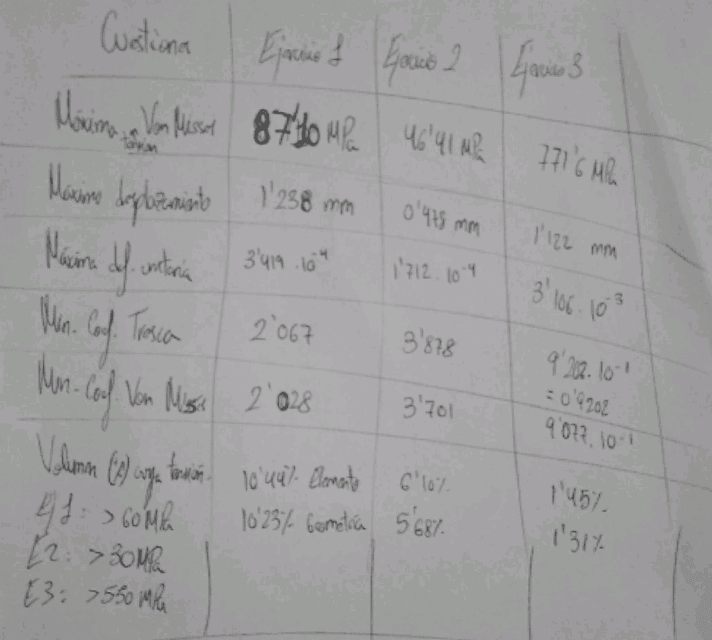 Cuestiona Ejercicio 1 Ejercicio 2 Ejercicio 3
Máxima tensión Von Misses 87'10 MPa 46'41 MPa 771'6 MPa
Máximo desplazamiento 1'238 mm 0'478 mm 1'122 mm
Máxima def. unitaria 3'419 . 10⁻⁴ 1'712 . 10⁻⁴ 3'106 . 10⁻³
Min. Coef. Tresca 2'067 3'878 9'202 . 10⁻¹
= 0'9202
Min. Coef. Von Misses 2'028 3'701 9'077 . 10⁻¹
Volumen (%) cuya tensión. 10'44% Elemento 6'10% 1'45%
Ej1: >60 MPa 10'23% Geométrica 5'68% 1'31%
E2: >30 MPa
E3: >550 MPa